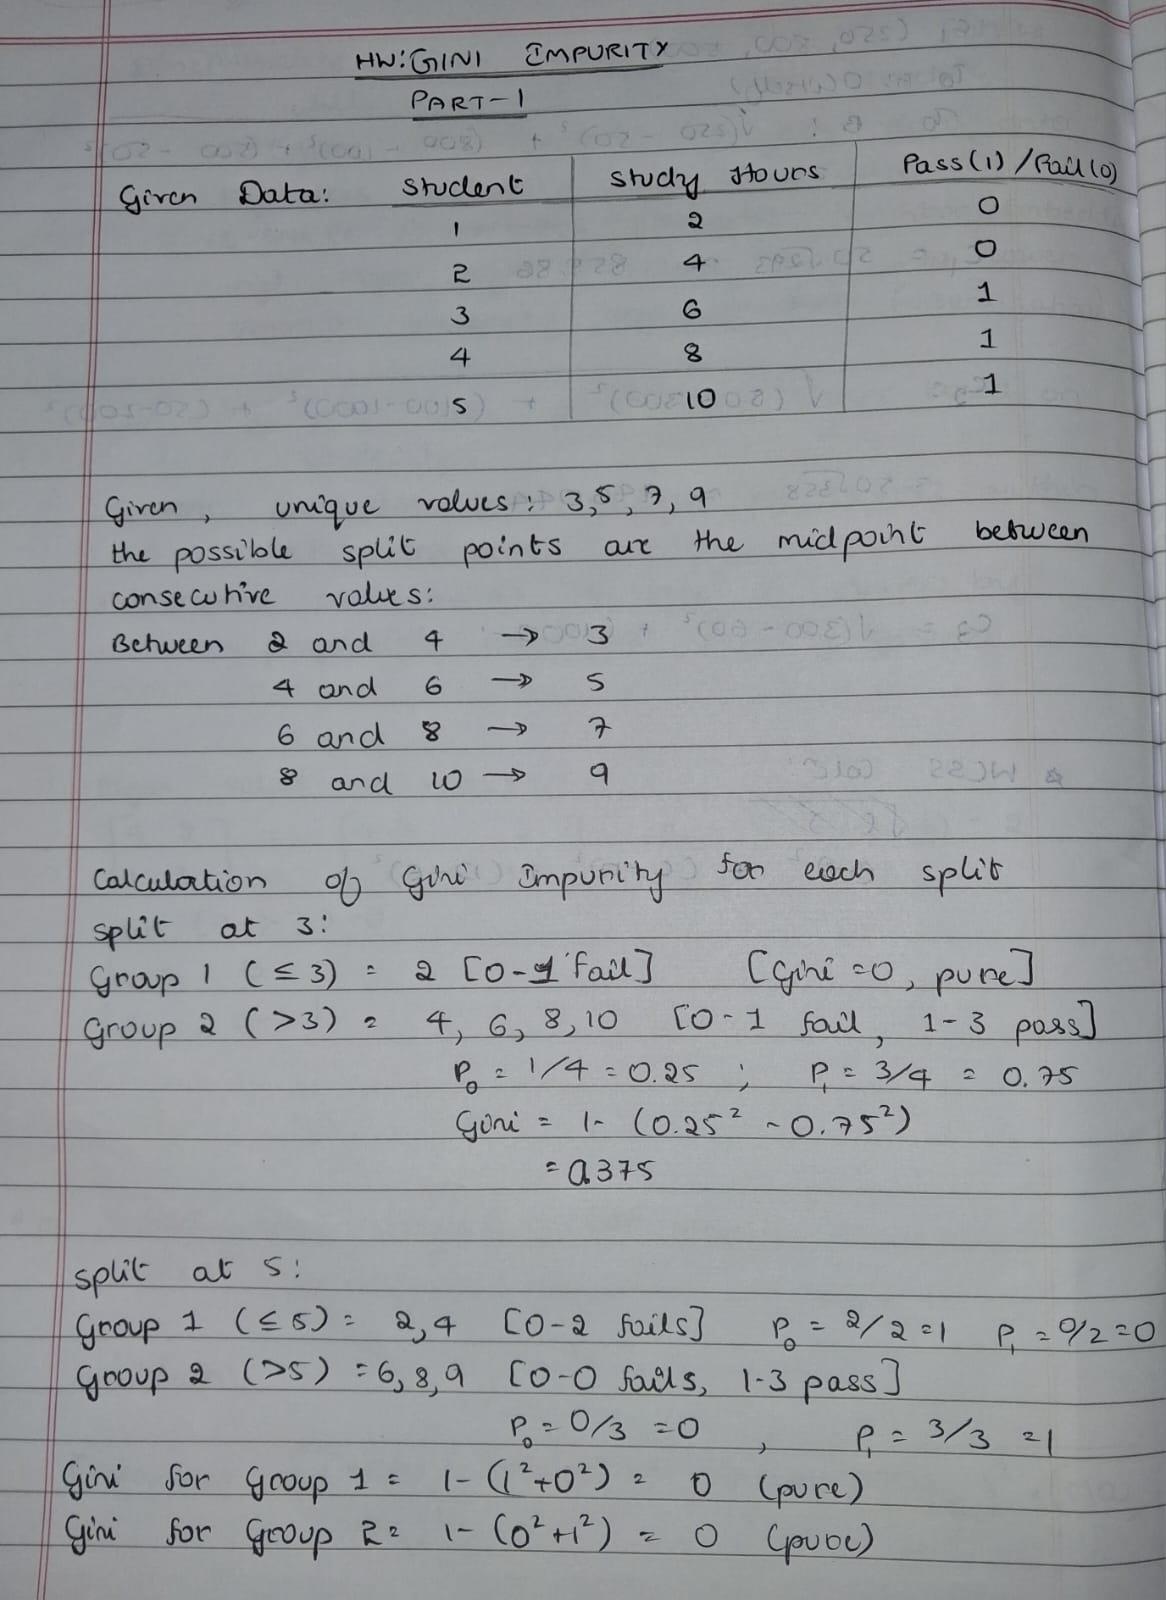 HW: GINI IMPURITY
PART-1
Given Data: Student Study Hours Pass(1)/Fail(0)
1 2 0
2 4 0
3 6 1
4 8 1
5 10 1
Given, unique values: 3,5,7,9
the possible split points are the midpoint between
consecutive values:
Between 2 and 4 → 3
4 and 6 → 5
6 and 8 → 7
8 and 10 → 9
Calculation of Gini Impurity for each split
split at 3:
Group 1 (≤3) = 2 [0-1 fail] [Gini =0, pure]
Group 2 (>3) = 4, 6, 8, 10 [0-1 fail, 1-3 pass]
P₀ = 1/4 = 0.25 ; P₁ = 3/4 = 0.75
Gini = 1- (0.25² - 0.75²)
= 0.375
split at 5:
Group 1 (≤5) = 2,4 [0-2 fails] P₀ = 2/2 =1 P₁ = 0/2=0
Group 2 (>5) = 6,8,9 [0-0 fails, 1-3 pass]
P₀ = 0/3 =0 , P₁ = 3/3 =1
Gini for Group 1 = 1-(1²+0²) = 0 (pure)
Gini for Group 2= 1-(0²+1²) = 0 (pure)